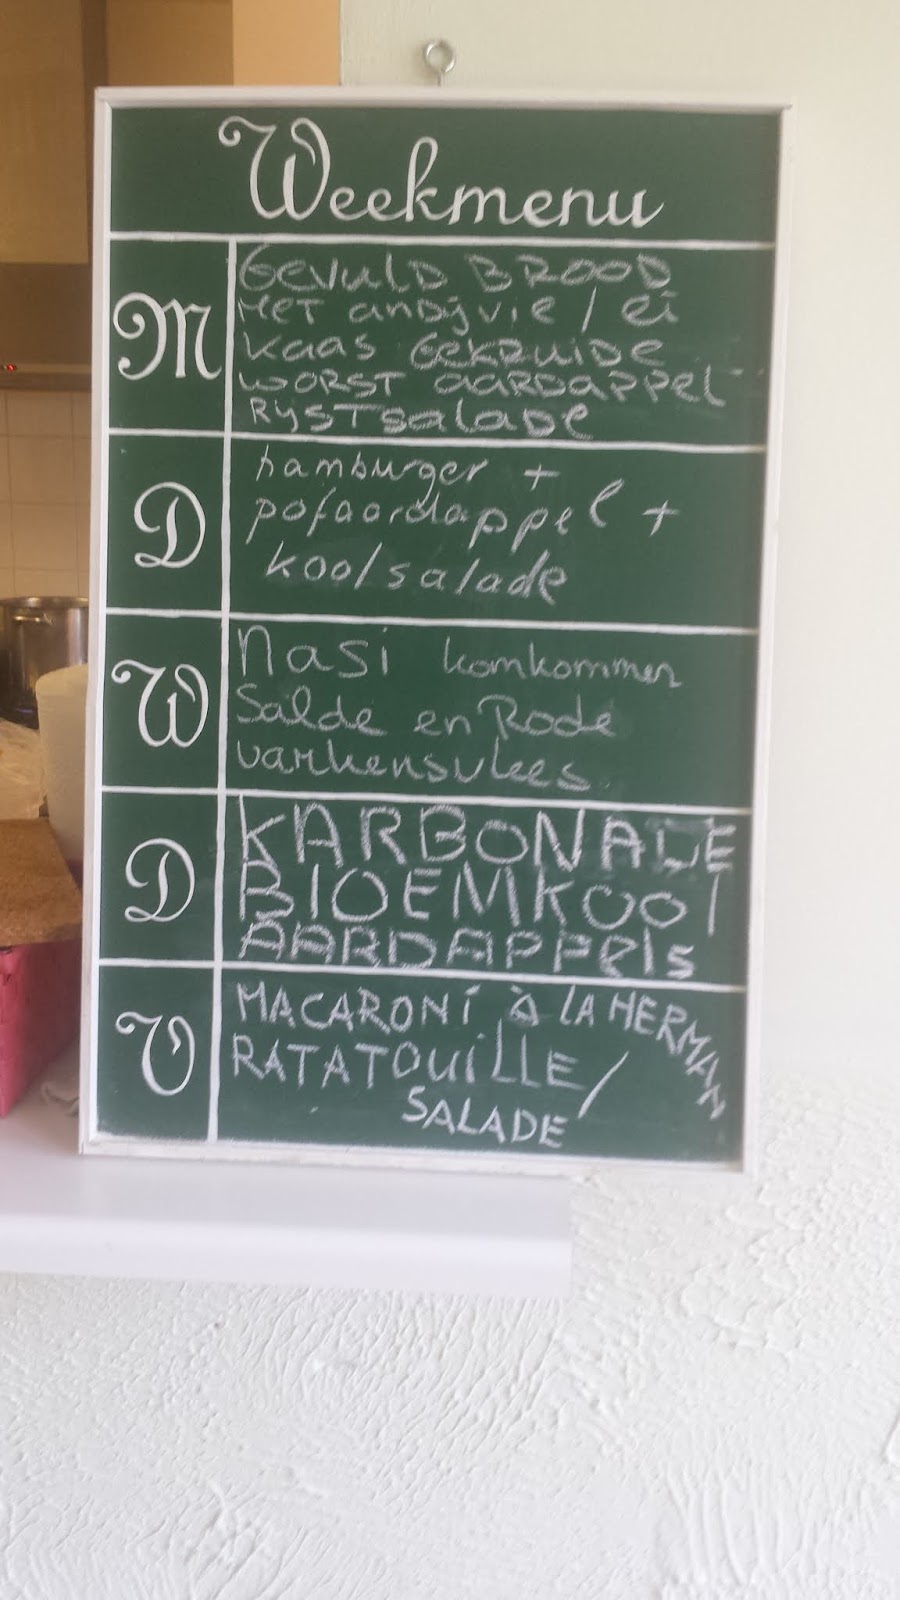 Weekmenu
M
GEVULD BROOD
MET andijvie / ei
kaas GEKRUIDE
WORST AARDAPPEL-
RIJSTSALADE
D
hamburger +
pofaardappel +
koolsalade
W
Nasi komkommer
Salde en Rode
varkensvlees.
D
KARBONALE
BlOEMKOOl
AARDAPPElS
V
MACARONI à lA HERMAN
RATATOUILLE /
SALADE